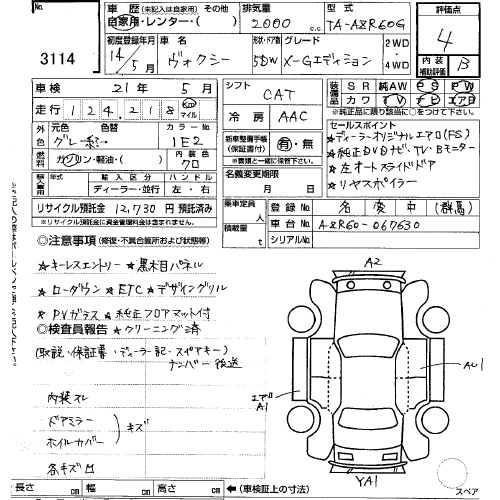 No.
3114
車歴 (未記入は自家用) その他
自家用・レンター・( )
排気量
2000 c.c
型式
TA-AZR60G
評価点
4
内装 補助評価 B
初度登録年月
14年 5月
車名
ヴォクシー
形状・ドア数
5DW
グレード
X-Gエディション
2WD
4WD
車検 21年 5月
走行 124,218 Km マイル
シフト
CAT
冷房 AAC
装備品
SR 純AW PS PW
カワ TV エアB
※純正品に限り該当に○をつけて下さい。
外色
元色 色替
グレー系
カラーNo.
1E2
燃料
ガソリン・軽油・( )
内装色
クロ
輸入車
年式 輸入区分 ハンドル
年 ディーラー・並行 左・右
新車整備手帳 (保証書付)
有・無
※書類と一緒に保管下さい。
名義変更期限
月 日
セールスポイント
★ディーラーオリジナルエアロ(FS)
★純正DVDナビ・TV・Bモニター
★左オートスライドドア
★リヤスポイラー
リサイクル預託金 12,730円 預託済み
※リサイクル預託金に資金管理料金は含まれます。
乗車定員 人
積載量 t
登録No. 名変中 (群馬)
車台No. AZR60-067630
シリアルNo.
◎注意事項 (修復・不具合箇所および状態等)
★キーレスエントリー ★黒木目パネル
★ローダウン ★ETC ★デザイングリル
★PVガラス ★純正フロアマット付
◎検査員報告 ★クリーニング済
(取説・保証書・ディーラー記・スペアキー)
ナンバー 後送
内装スレ
ドアミラー
ホイルカバー
キズ
各キズ凹
A2
エアロ
A1
AU1
YA1
スペア
長さ cm 幅 cm 高さ cm ←(車検証上の寸法)